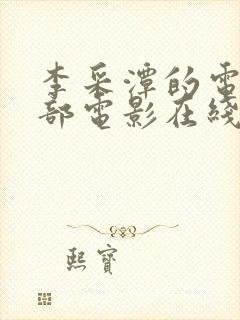 李采潭的電
部電影在綫
熙寶